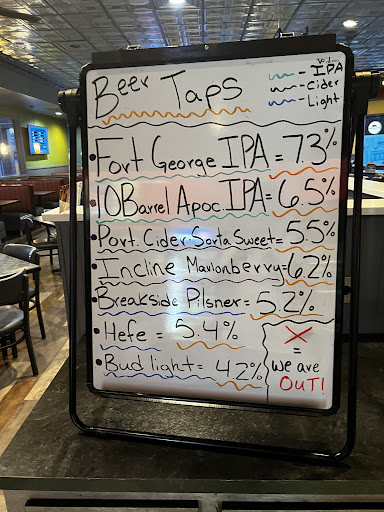 Beer Taps
- IPA
- Cider
- Light
Fort George IPA = 7.3%
10Barrel Apoc. IPA = 6.5%
Port. Cider-Sorta Sweet = 5.5%
Incline Marionberry = 6.2%
Breakside Pilsner = 5.2%
Hefe = 5.4%
Bud light = 4.2%
X
=
We are
OUT!